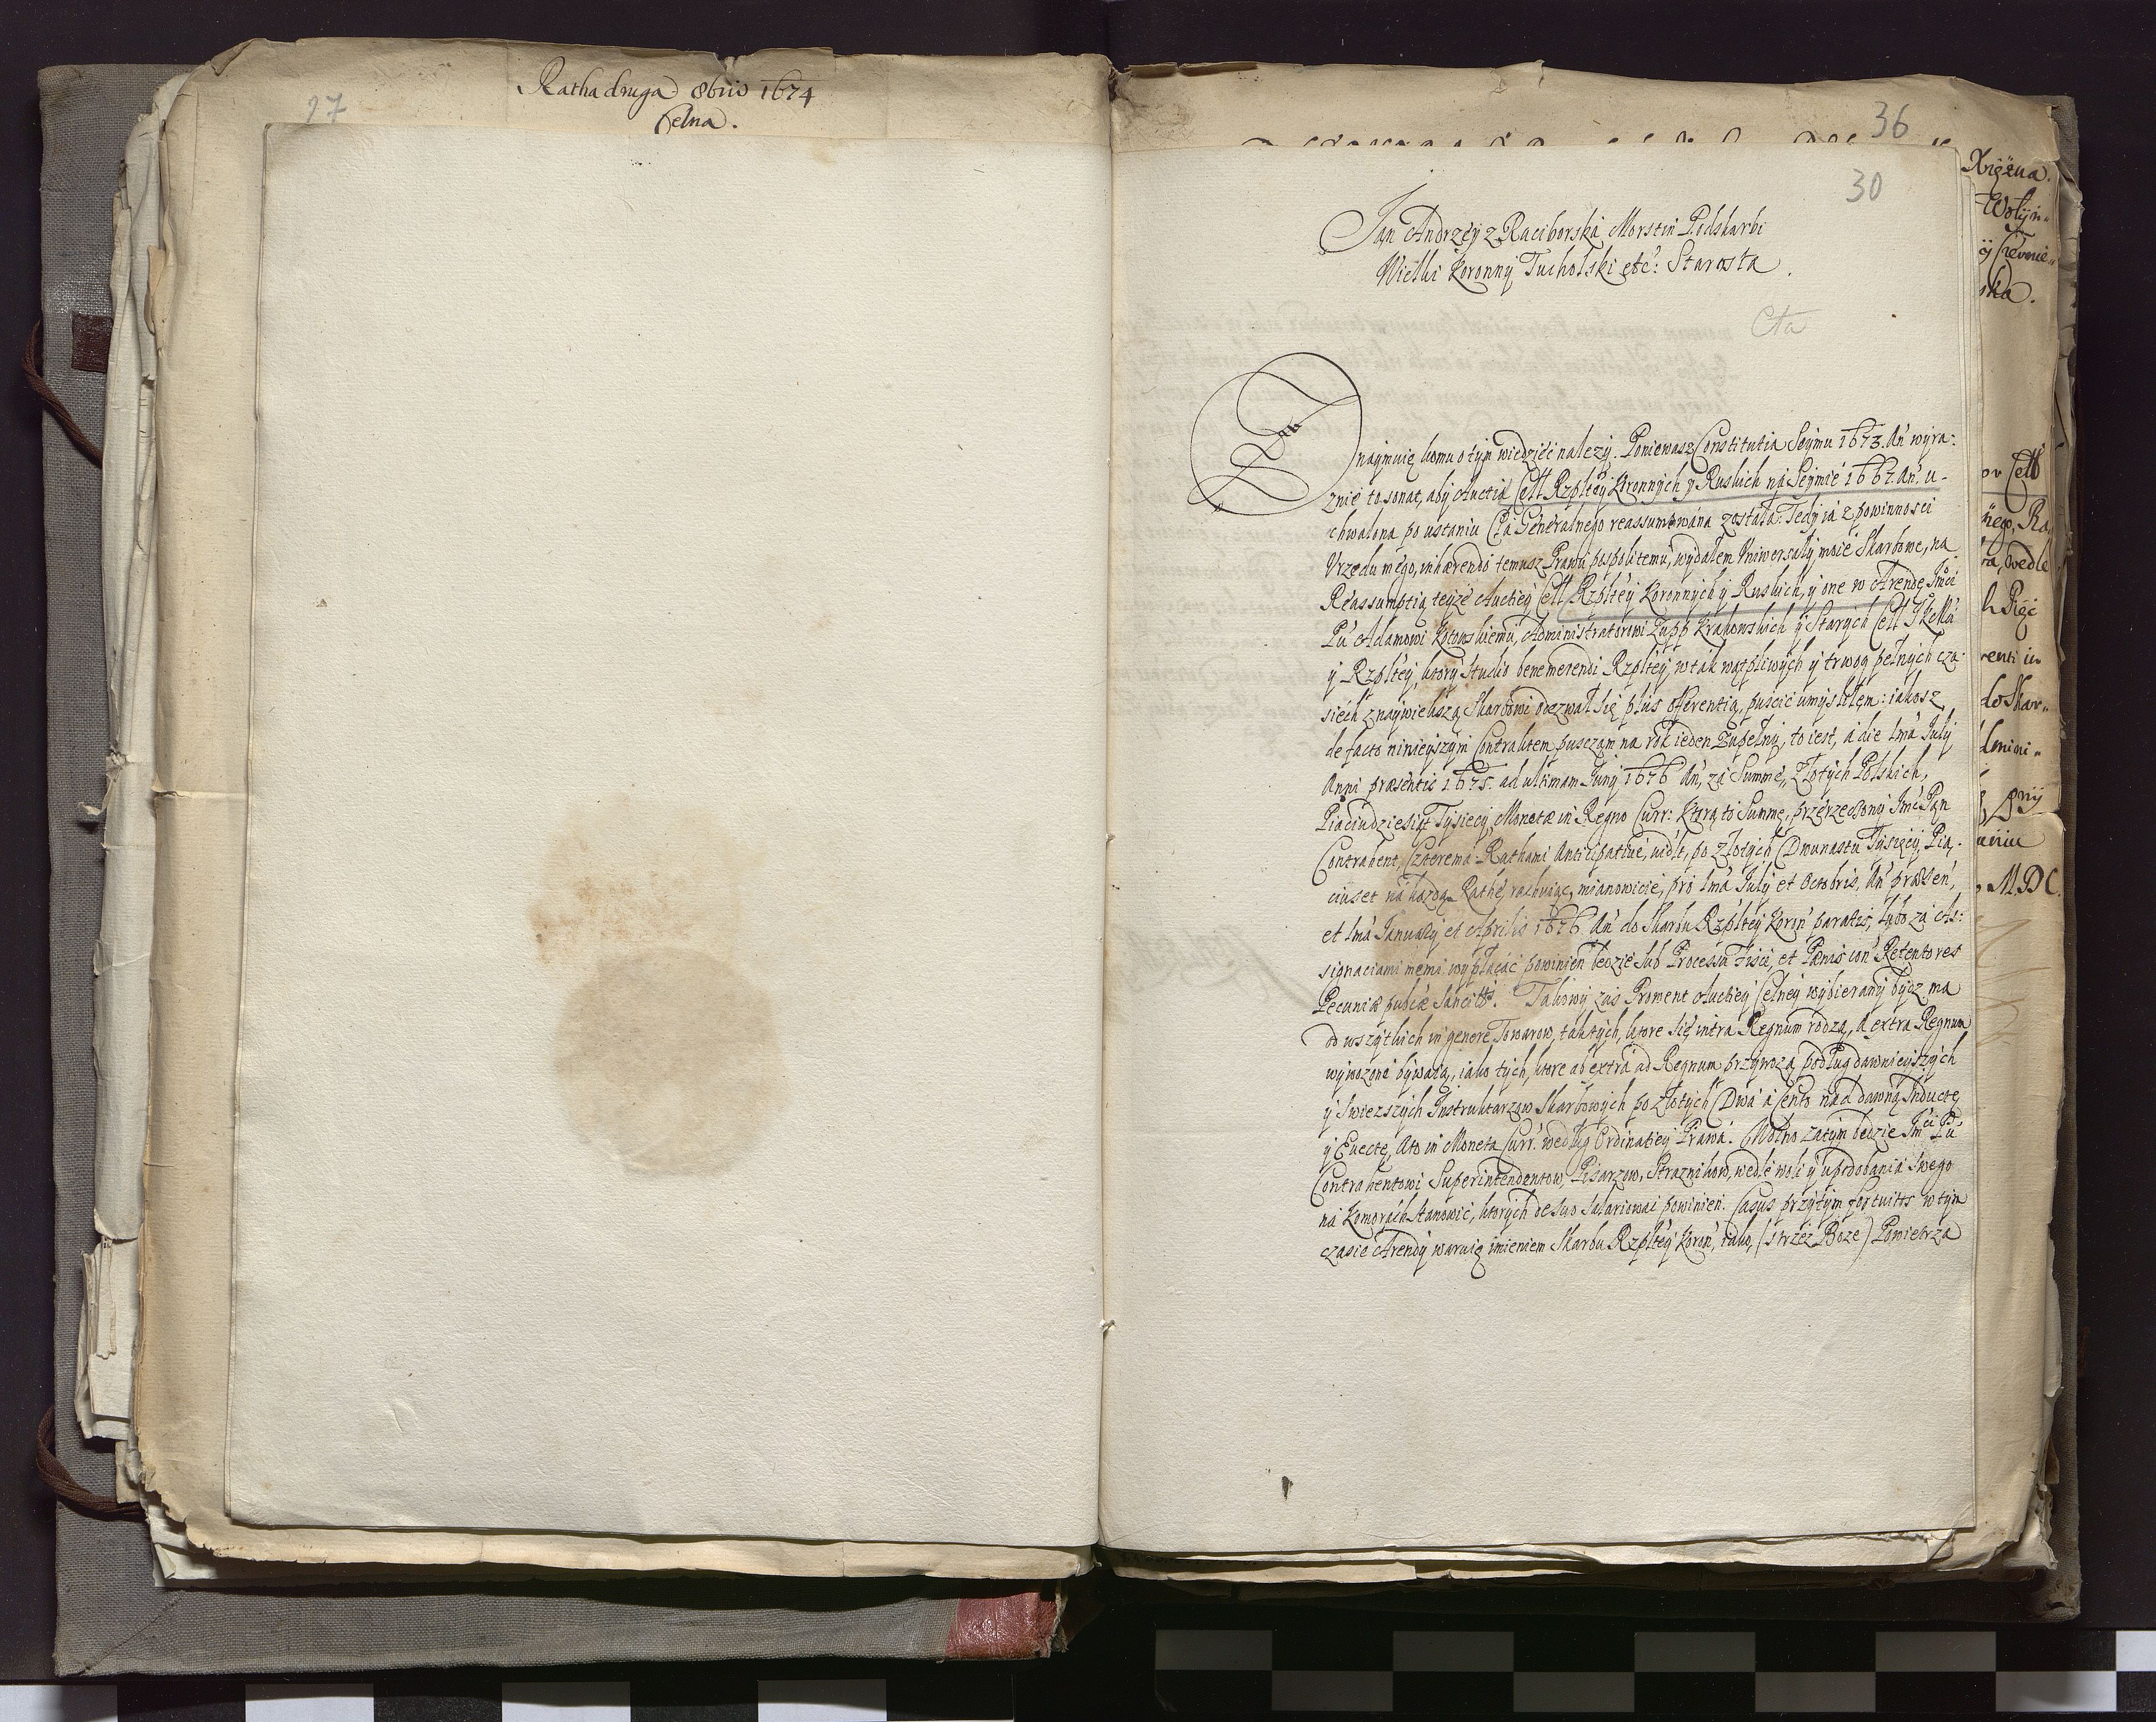 27
Ratha druga 8bris 1674
Celna.
36
30
Jan Andrzey z Raciborská Morstin Podskarbi
Wielki Koronny Tucholski etc: Starosta.
Cła
Oznaymuię komu o tym wiedzieć nalezy. Poniewasz Constitutia Seymu 1673. An̄ wyra:
znie to sonat, aby Auctia Cell Rzpltey Koronnych y Ruskich ná Seymie 1667. An̄. u-
chwalona po ustaniu Cła Generalnego reassumowána została: Tedy iá z powinnosci
Vrzedu mego, inhærendo temusz Prawu pospolitemu, wydałem Vniwersały moie Skarbowe, na
Reassumptią teyze Auctiey Cell Rzpltey Koronnych y Ruskich, y one w Arendę Jmci
Pu Adamowi Kotowskiemu, Administratorowi Zupp Krakowskich y Starych Cell J K Mci
y Rzpltey, ktory studio benemerendi Rzpltey, w tak wątpliwych y trwog pełnych cza-
siech z naywiekszą Skarbowi odezwał się plus offerentią, puscić umysliłem: iakosz
de facto ninieyszym Contraktem pusczam na rok ieden Zupełny, to iest, á die 1má July
Anni præsentis 1675. ad ultimam Juny 1676 An̄, zá Summę, Złotych Polskich,
Piaciudziesiąt Tysiecy, Monetæ in Regno Curr: Ktorą to Summę, przerzeczony Jmc Pan
Contrahent, Czterema Rathami Anticipative, vidlt, po Złotych Dwunastu Tysięcy Pią-
ciuset ná kozdą Rathę rachuiąc, mianowicie, pro 1má July et Octobris, An̄ præsen̄,
et 1má January et Aprilis 1676 An̄ do Skarbu Rzpltey Koron̄ paratis, lubo zá As:
signaciami memi wypłacać powinien bedzie sub Processu Fisci, et Pænis con̄ Retentores
Pecuniæ publcæ sancitis. Takowy zás Prowent Auctiey Celney wybierany bydz ma
od wszytkich in genere Towarow, tak tych, ktore się intra Regnum rodzą, á extra Regnum
wywozone bywaią, iako tych, ktore ab extrá ad Regnum przywozą podług dawnieyszych
y swiezszych Instruktarzow Skarbowych po złotych Dwá á Cento nád dawną Inductę
y Evectę, Ato in Moneta Curr. według Ordinatiey Prawá. Wolno zatym bedzie Jmci Pu
Contrahentowi Superintendentow, Pisarzow, Straznikow, wedle woli y upodobania swego
ná Komorach stanowić, ktorych de suo salariowac powinien. Casus przytym fortuitos w tym
czasie Arendy waruię imieniem Skarbu Rzpltey Koron̄, iako, (strzez Boze) Powietrza
Xiężna.
Wołyn-
ska.
Cell
wedle
Pięć
do Skar-
M.DC.